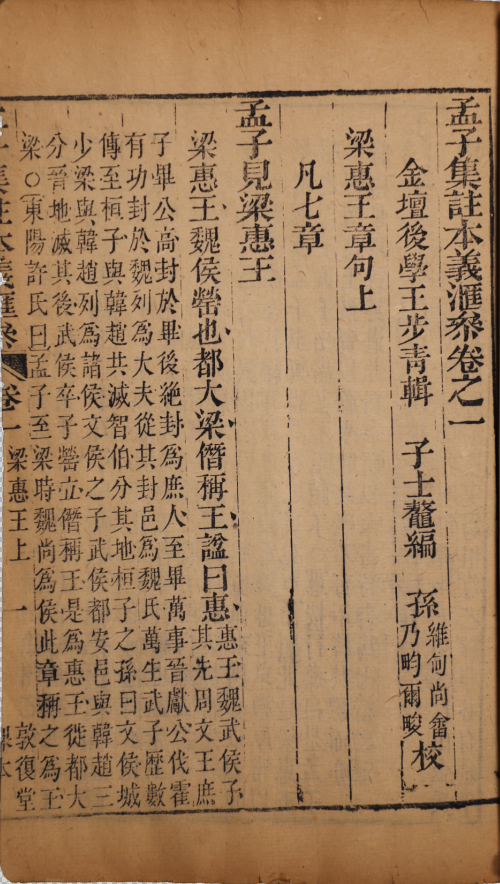 孟子集註本義滙叅卷之一
金壇後學王步青輯 子士鼇編 孫
維甸尚畬
乃昀爾畯
校
梁惠王章句上
凡七章
孟子見梁惠王
梁惠王魏侯罃也都大梁僭稱王諡曰惠
惠王魏武侯子
其先周文王庶
子畢公高封於畢後絶封為庶人至畢萬事晉獻公伐霍
有功封於魏列為大夫從其封邑為魏氏萬生武子歷數
傳至桓子與韓趙共滅智伯分其地桓子之孫曰文侯城
少梁與韓趙列為諸侯文侯之子武侯都安邑與韓趙三
分晉地滅其後武侯卒子罃立僭稱王是為惠王徙都大
梁○東陽許氏曰孟子至梁時魏尚為侯此章稱之為王
孟子集註本義滙叅 卷一 梁惠王上 一 敦復堂
課本